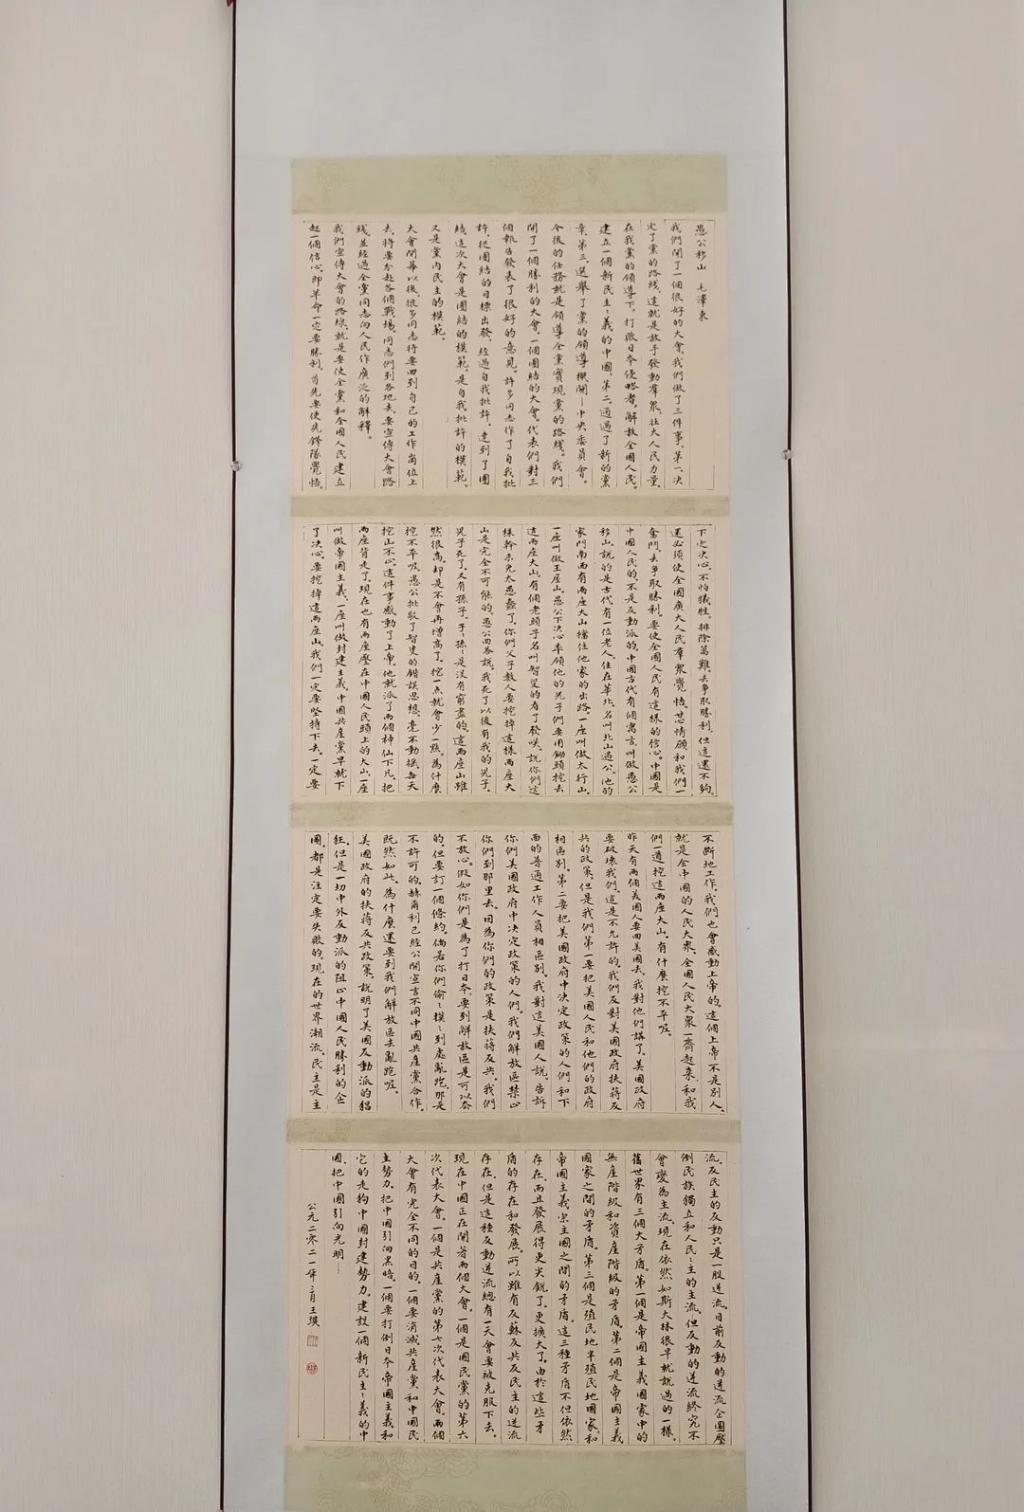 愚公移山　毛澤東
我們開了一個很好的大會。我們做了三件事，第一，决
定了黨的路线，這就是放手發動羣衆，壯大人民力量，
在我黨的領導下，打敗日本侵略者，解放全國人民，
建立一個新民主〻義的中國。第二，通過了新的黨
章。第三，選舉了黨的領導機關—中央委員會。
今後的任務就是領導全黨實現黨的路线。我們
開了一個勝利的大會，一個團結的大會。代表們對三
個報告發表了很好的意見。許多同志作了自我批
評，從團結的目標出發，經過自我批評，達到了團
結。這次大會是團結的模範，是自我批評的模範，
又是黨内民主的模範。
大會閉幕以後，很多同志将要回到自己的工作崗位上
去，将要分赴各個戰場。同志們到各地去，要宣傳大會路
线，並經過全黨同志向人民作廣泛的解釋。
我們宣傳大會的路線，就是要使全黨和全國人民建立
起一個信心，即革命一定要勝利。首先要使先鋒隊覺悟，
下定决心，不怕犧牲，排除萬難，去爭取勝利。但這還不夠，
還必須使全國廣大人民羣衆覺悟，甘心情願和我們一
奮鬥，去爭取勝利。要使全國人民有這樣的信心：中國是
中國人民的，不是反動派的。中國古代有個寓言，叫做愚公
移山。説的是古代有一位老人，住在華北，名叫北山愚公。他的
家門南面有兩座大山擋住他家的出路，一座叫做太行山，
一座叫做王屋山。愚公下决心率領他的兒子們要用鋤頭挖去
這兩座大山。有個老頭子名叫智叟的看了發笑，説你們這
樣幹未免太愚蠢了，你們父子數人要挖掉這樣兩座大
山是完全不可能的。愚公回答説：我死了以後有我的兒子，
兒子死了，又有孫子，子〻孫〻是沒有窮盡的。這兩座山雖
然很高，却是不會再增高了，挖一点就會少一点，為什麼
挖不平呢。愚公批駁了智叟的錯誤思想，毫不動摇，每天
挖山不止。這件事感動了上帝，他就派了兩個神仙下凡，把
兩座背走了。現在也有兩座壓在中國人民頭上的大山，一座
叫做帝國主義，一座叫做封建主義。中國共產黨早就下
了决心，要挖掉這兩座山。我們一定要堅持下去，一定要
不斷地工作，我們也會感動上帝的。這個上帝不是别人，
就是全中國的人民大衆。全國人民大衆一齊起来和我
們一道挖這兩座大山，有什麼挖不平呢。
昨天有兩個美國人要回美國去，我對他們講了，美國政府
要破壞我們，這是不允許的。我們反對美國政府扶蔣反
共的政策。但是我們第一要把美國人民和他們的政府
相區别，第二要把美國政府中决定政策的人們和下
面的普通工作人員相區别。我對這美國人説：告訴
你們美國政府中决定政策的人們，我們解放區禁止
你們到那里去，因為你們的政策是扶蔣反共，我們
不放心。假如你們是為了打日本，要到解放區是可以去
的，但要訂一個條約。倘若你們偷〻摸〻到處亂跑，那是
不許可的。赫爾利已經公開宣言不同中國共產黨合作，
既然如此，為什麼還要到我們解放區去亂跑呢。
美國政府的扶蔣反共政策，説明了美國反動派的猖
狂。但是一切中外反動派的阻止中國人民勝利的企
圖，都是注定要失敗的。現在的世界潮流，民主是主
流，反民主的反動只是一股逆流。目前反動的逆流企圖壓
倒民族獨立和人民〻主的主流，但反動的逆流終究不
會變為主流。現在依然如斯大林很早就説過的一樣，
舊世界有三個大矛盾：第一個是帝國主義國家中的
無産階級和資産階級的矛盾，第二個是帝國主義
國家之間的矛盾，第三個是殖民地半殖民地國家和
帝國主義宗主國之間的矛盾。這三種矛盾不但依然
存在，而且發展得更尖銳了，更擴大了。由於這些矛
盾的存在和發展，所以雖有反蘇反共反民主的逆流
存在，但是這種反動逆流總有一天會要被克服下去。
現在中國正在開著兩個大會，一個是國民黨的第六
次代表大會，一個是共產黨的第七次代表大會。兩個
大會有完全不同的目的：一個要消滅共產黨和中國民
主勢力，把中國引向黑暗；一個要打倒日本帝國主義和
它的走狗中國封建勢力，建設一個新民主〻義的中
國，把中國引向光明…
公元二零二一年三月王